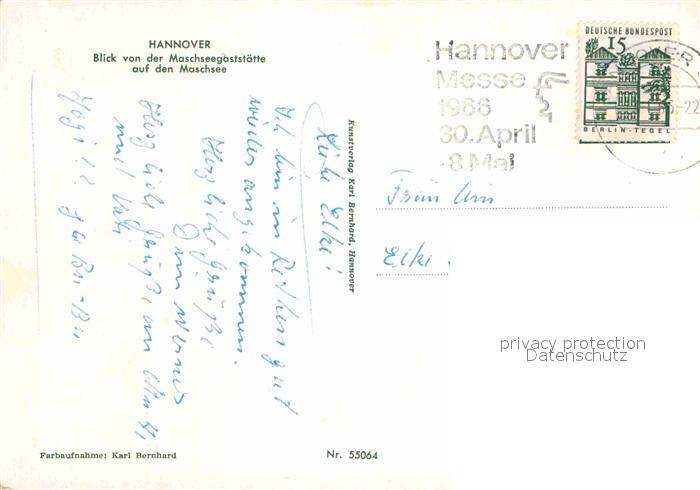 HANNOVER
Blick von der Maschseegaststätte
auf den Maschsee
Hannover
Messe
1966
30. April
-8. Mai
DEUTSCHE BUNDESPOST
15
BERLIN-TEGEL
-22
Liebe Elke!
Ich bin in gut
wieder angekommen.
Herzliche Grüße
Dein Werner
Herzliche Grüße an
und
Fräulein
Elke
Kunstverlag Karl Bernhard, Hannover
privacy protection
Datenschutz
Farbaufnahme: Karl Bernhard
Nr. 55064